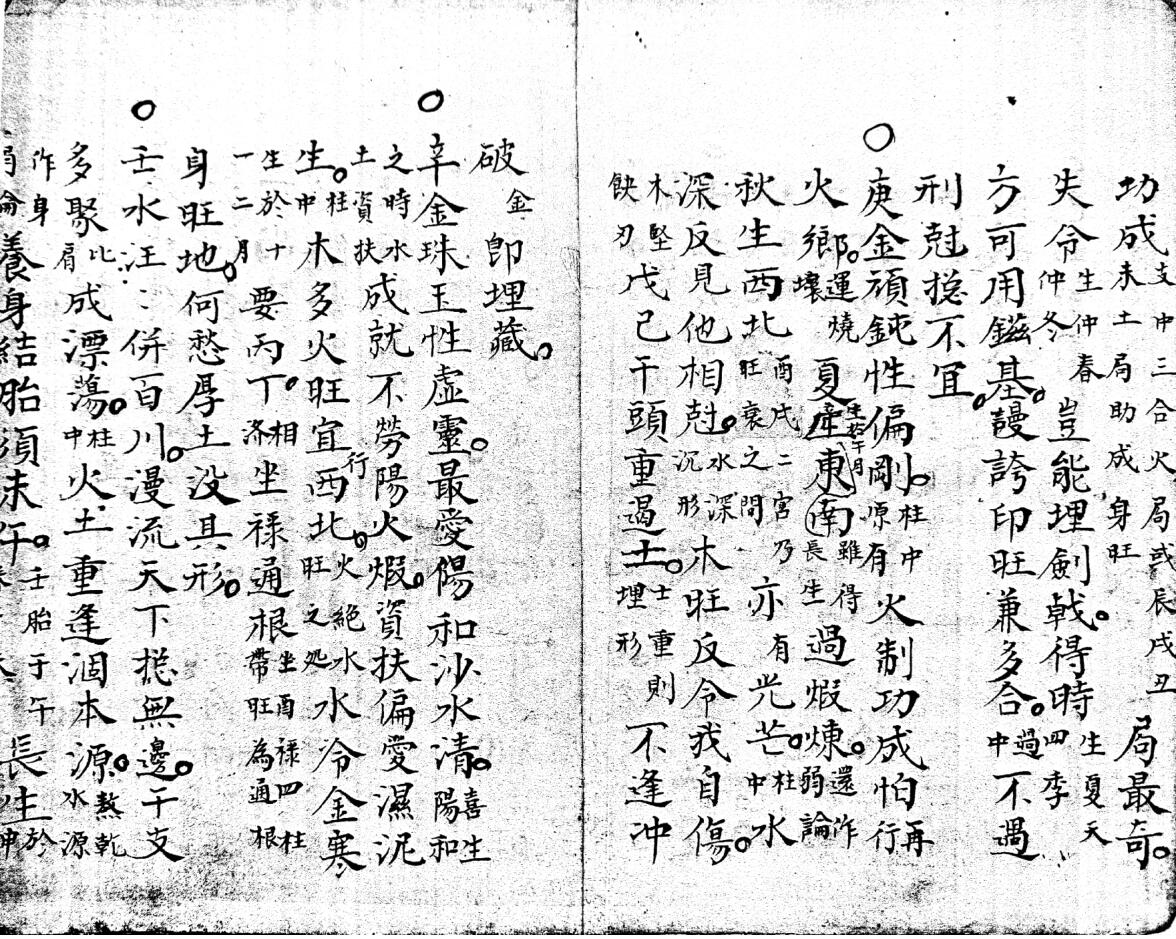 功成支中三合火局或辰戌丑未土局助成身旺局最奇。
失令生仲春仲冬豈能埋劍戟。得時生夏天四季
方可用鎡基。謾誇印旺兼多合。過中不遇
刑尅揔不宜。
○庚金頑鈍性偏剛。柱中原有火制功成怕再行
火鄉。運燒壞夏產生於午月東南雖得長生過煆煉。還作弱論
秋生西北酉戌二宮乃旺衰之間亦有光芒。柱中水
深反見他相尅。水深沉形木旺反令我自傷。
木堅鈌刃戊己干頭重遇土。土重則埋形不逢冲
破金即埋藏。
○辛金珠玉性虛靈。最愛陽和沙水清。喜生陽和
之時水土資扶成就不勞陽火煆。資扶偏愛濕泥
生。柱中木多火旺宜行西北。火絕水旺之処水冷金寒
生於十一二月要丙丁。相济坐祿通根坐酉祿四柱帶旺為通根
身旺地。何愁厚土没其形。
○壬水汪：併百川。漫流天下揔無邊。干支
多聚比肩成漂蕩。柱中火土重逢涸本源。熬乾水源
作身養身結胎須未午。壬胎于午長生於